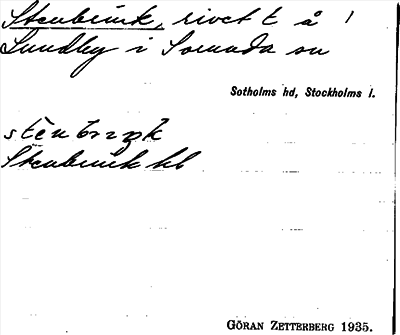 Stenbrink, rivet t å 1
Lundby i Sorunda sn
Sotholms hd, Stockholms l.
stènbriŋk
Stenbrink hb
GÖRAN ZETTERBERG 1935.